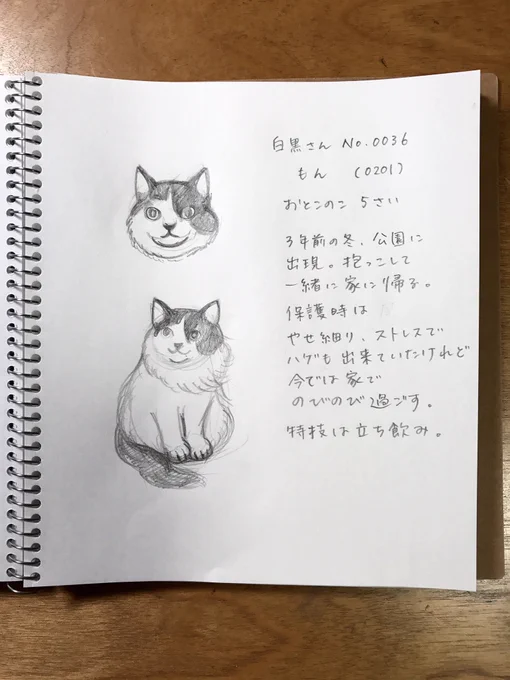 白黒さん No.0036
もん (0201)
おとこのこ 5さい
3年前の冬、公園に
出現。抱っこして
一緒に家に帰る。
保護時は
やせ細り、ストレスで
ハゲも出来ていたけれど
今では家で
のびのび過ごす。
特技は立ち飲み。